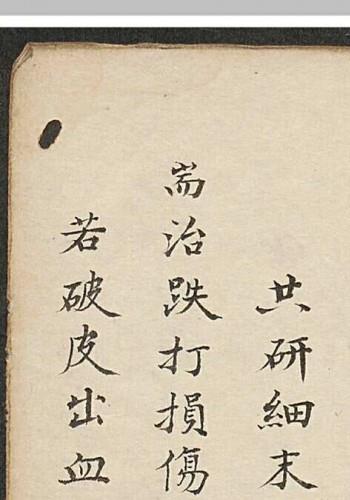 共研細末
耑治跌打損傷
若破皮出血